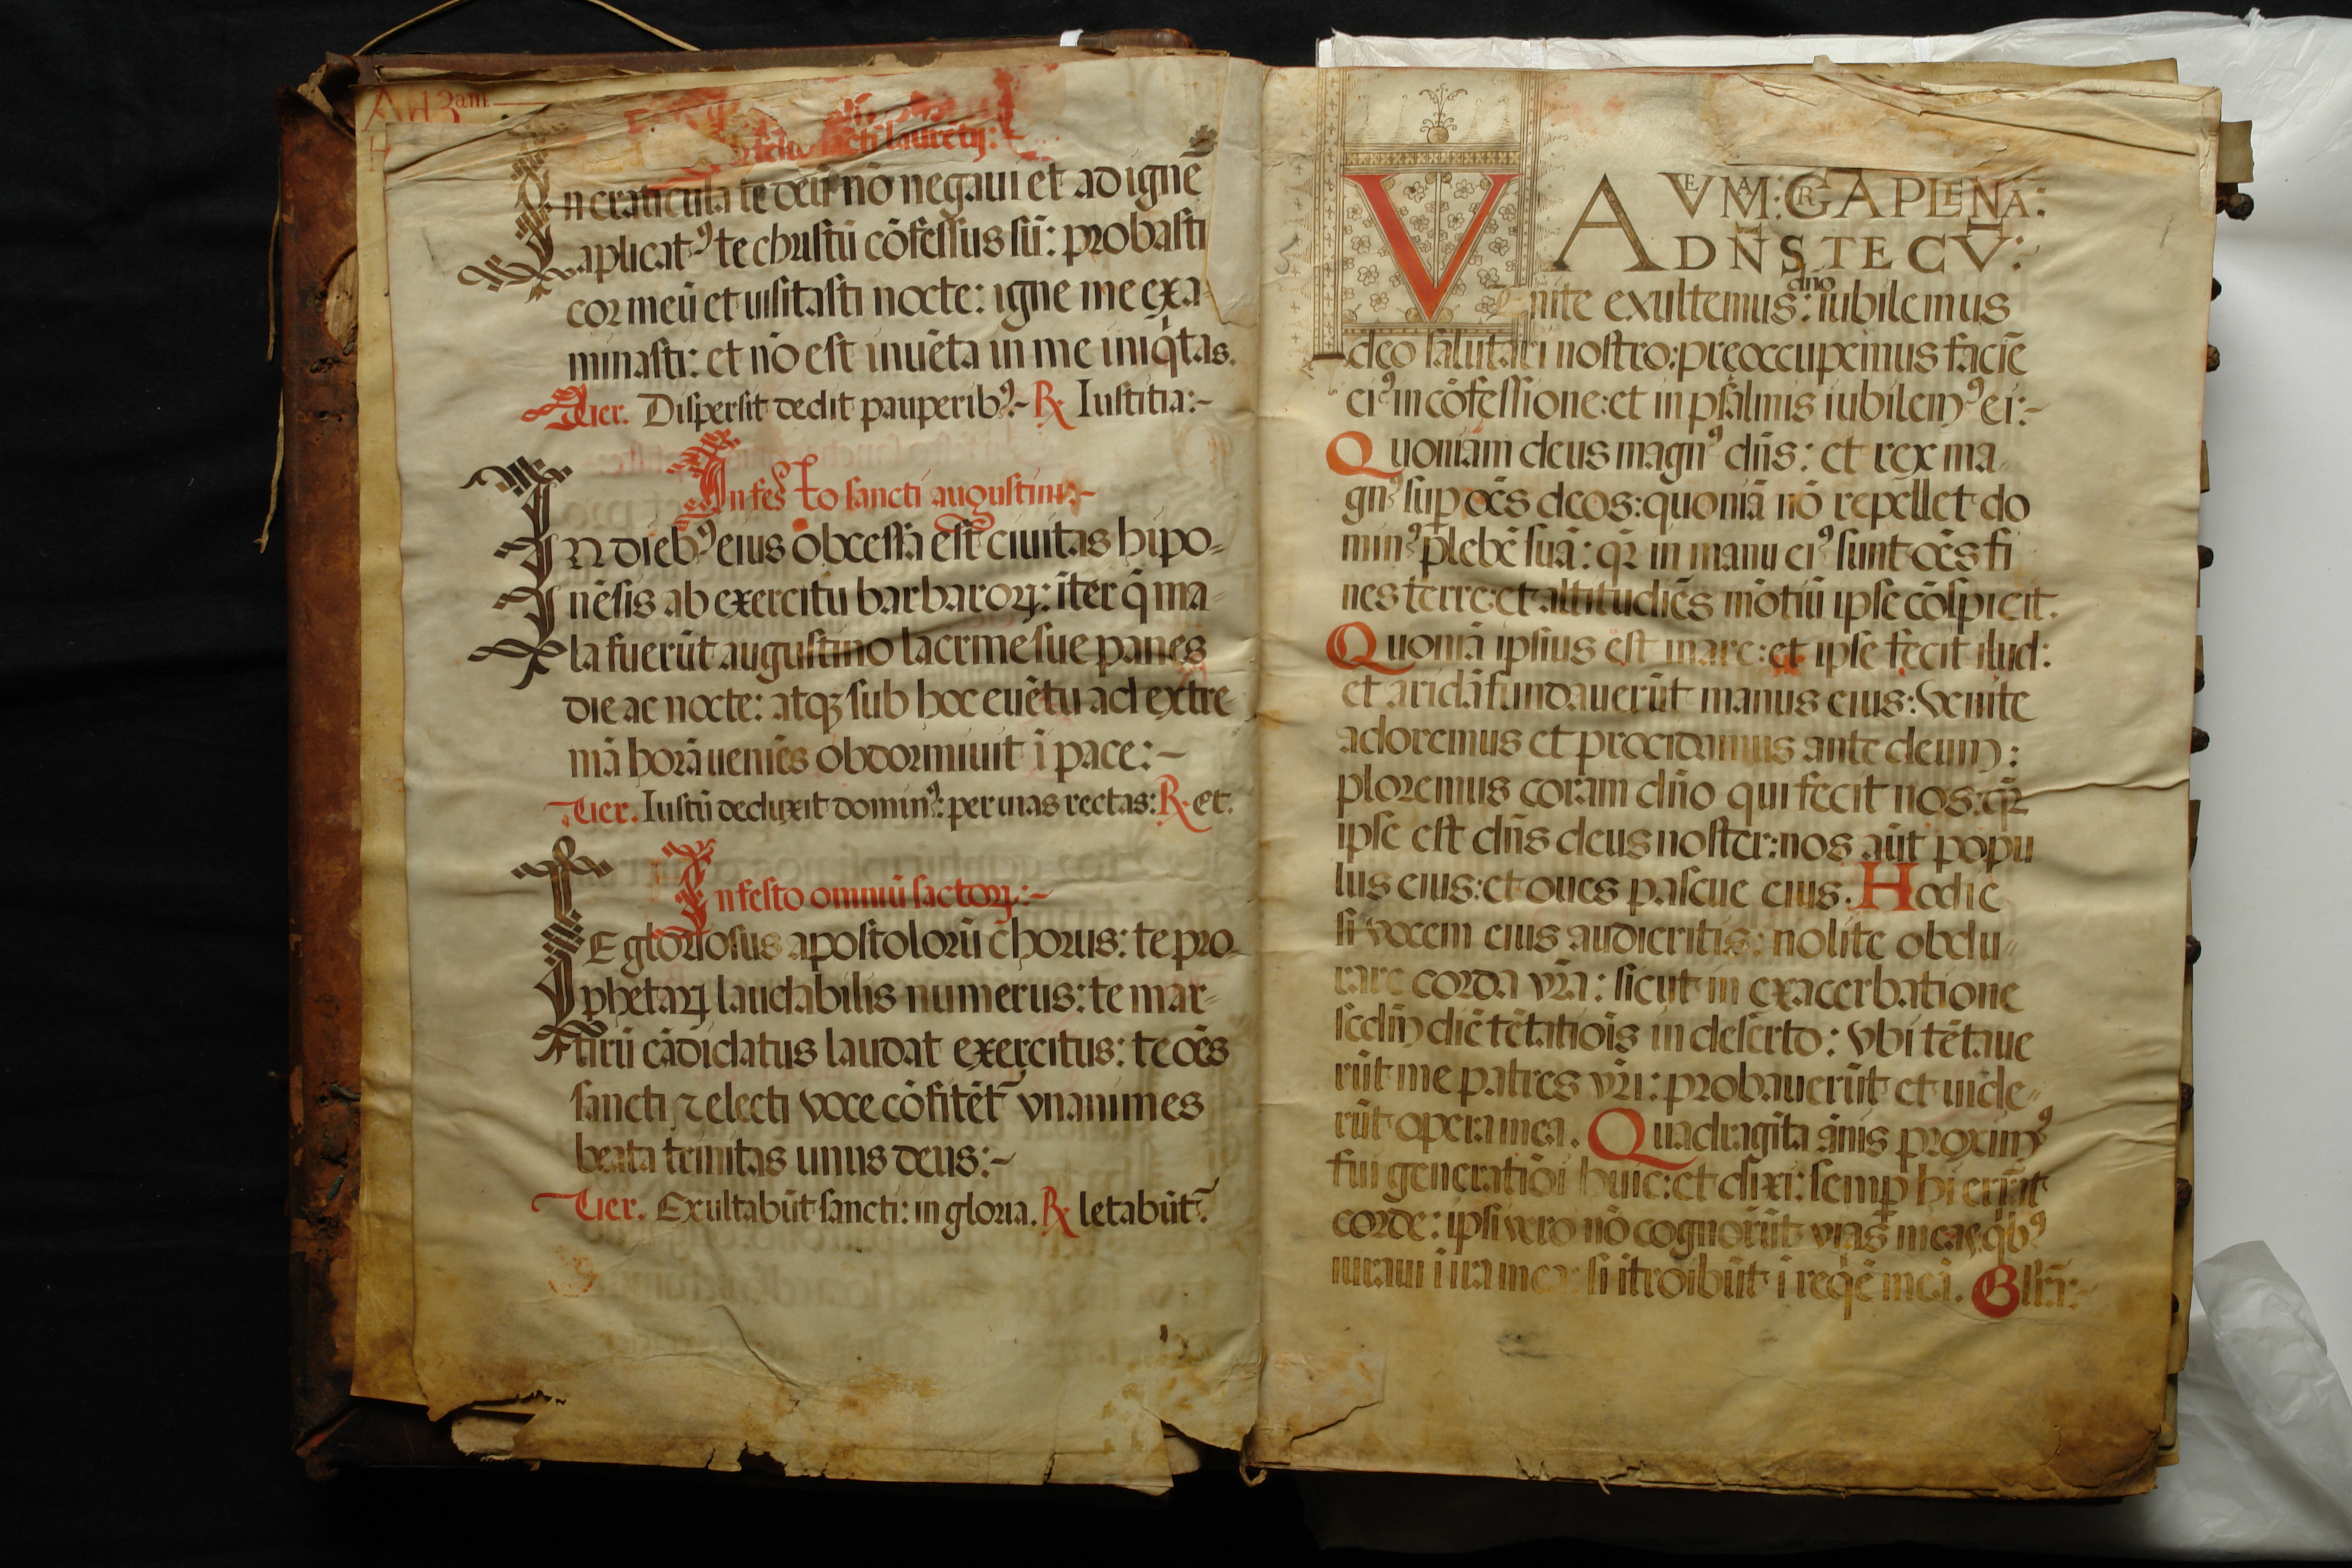 A H 3am
sancti lauretij:
In craticula te deū nō negaui et ad ignē
aplicatꝰ te christū cōfessus sū: probasti
cor meū et uisitasti nocte: igne me exa-
minasti: et nō est inuēta in me iniq̇tas.
Uer. Dispersit dedit pauperibꝰ:~ ℟. Iustitia:~
In festo sancti augustini:~
In diebꝰ eius obcessa est ciuitas hipo-
nēsis ab exercitu barbaroꝝ: īter q̄ ma-
la fuerūt augustino lacrme sue panes
die ac nocte: atqꝫ sub hoc euētu ad extre
mā horā ueniēs obdormiuit ī pace:~
Uer. Iustū deduxit dominꝰ: per uias rectas: ℟. et.
In festo omniū sāctoꝝ:~
TE gloriosus apostolorū chorus: te pro-
phetaꝝ laudabilis numerus: te mar-
tirū cādidatus laudat exercitus: te oēs
sancti ⁊ electi voce cōfitēt᷑ vnanimes
beata trinitas unus deus:~
Uer. Exultabūt sancti: in gloria. ℟. letabūt᷑.
AVE MAR: GRA PLENA:
ADN̄S TECV̄:
Venite exultemus dn̄o: iubilemus
deo salutari nostro: preoccupemus faciē
eiꝰ in cōfessione: et in psalmis iubilemꝰ ei:~
Quoniam deus magnꝰ dn̄s: et rex ma-
gnꝰ suꝑ oēs deos: quoniā nō repellet do
minꝰ plebē suā: qꝛ in manu eiꝰ sunt oēs fi
nes terre: et altitudiēs mōtiū ipse cōspicit.
Quoniā ipsius est mare: et ipse fecit ilud:
et aridā fundauerūt manus eius: Venite
adoremus et procidamus ante deum:
ploremus coram dn̄o qui fecit nos: qꝛ
ipse est dn̄s deus noster: nos aūt popu
lus eius: et oues pascue eius. Hodie
si vocem eius audieritis: nolite obdu-
rare corda vr̄a: sicut in exacerbatione
secūdū diē tētatiōis in deserto: Vbi tētaue
rūt me patres vr̄i: probauerūt et uide-
rūt opera mea. Quadragīta ānis proximꝰ
fui generatiōi huic: et dixi: semꝑ hi errāt
corde: ipsi vero nō cognorūt vias meas: qbꝰ
iuraui ī ira mea: si ītroibūt ī reqē meā. Glīa:~